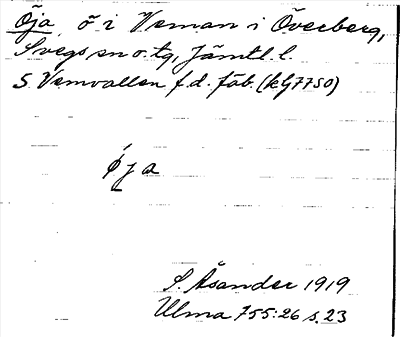 Öja, ö i Veman i Överberg,
Svegs sn o. tg, Jämtl. l.
S. Vemvallen f.d. fäb. (kG7750)
ǿja
S. Åsander 1919
Ulma 755:26 s. 23